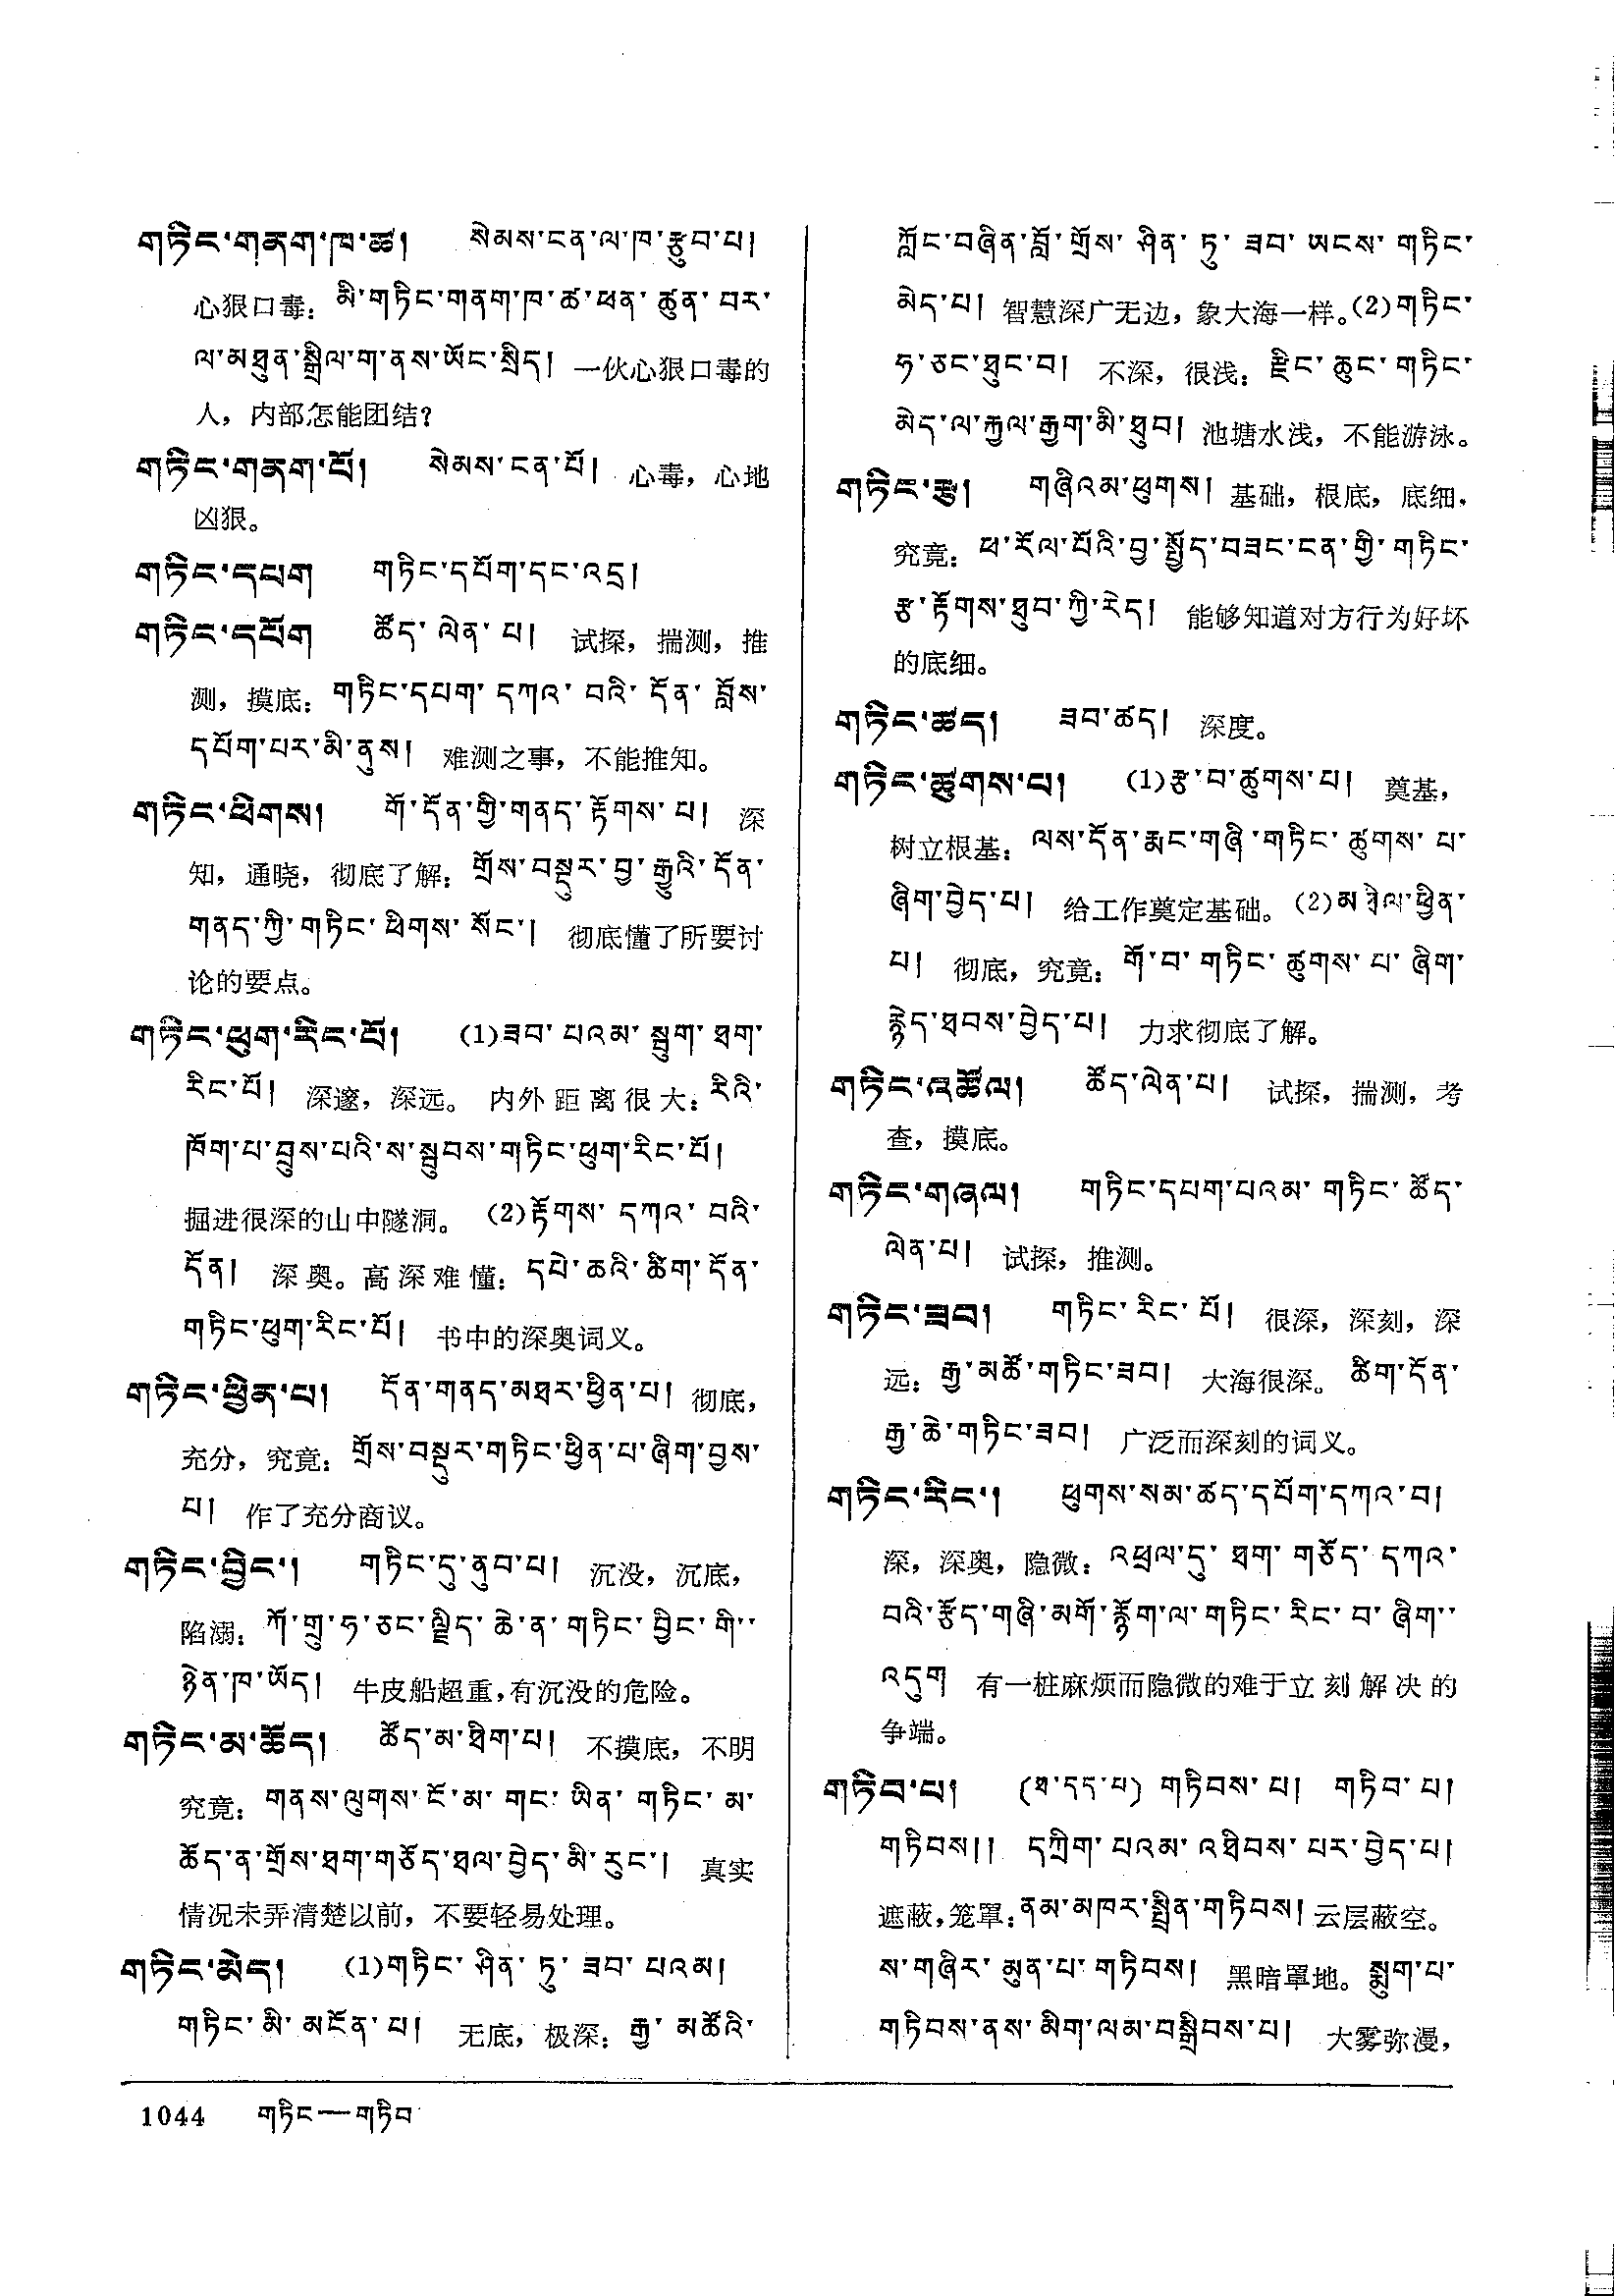 གཏིང་གནག་ཁ་ཚ། སེམས་ངན་ལ་ཁ་རྩུབ་པ།
心狠口毒：མི་གཏིང་གནག་ཁ་ཚ་ཕན་ཚུན་བར་
ལ་མཐུན་སྒྲིལ་ག་ནས་ཡོང་སྲིད། 一伙心狠口毒的
人，内部怎能团结？
གཏིང་གནག་པོ། སེམས་ངན་པོ། 心毒，心地
凶狠。
གཏིང་དཔག གཏིང་དཔོག་དང་འདྲ།
གཏིང་དཔོག ཚོད་ལེན་པ། 试探，揣测，推
测，摸底：གཏིང་དཔག་དཀའ་བའི་དོན་བློས་
དཔོག་པར་མི་ནུས། 难测之事，不能推知。
གཏིང་ཕིགས། གོ་དོན་གྱི་གནད་རྟོགས་པ། 深
知，通晓，彻底了解：གྲོས་བསྡུར་བྱ་རྒྱུའི་དོན་
གནད་ཀྱི་གཏིང་ཕིགས་སོང་། 彻底懂了所要讨
论的要点。
གཏིང་ཕུག་རིང་པོ། (1)ཟབ་པའམ་སྦུག་ཐག་
རིང་པོ། 深邃，深远。 内外距离很大：རིའི་
ཁོག་པ་བྲུས་པའི་ས་སྦུབས་གཏིང་ཕུག་རིང་པོ།
掘进很深的山中隧洞。 (2)རྟོགས་དཀའ་བའི་
དོན། 深奥。高深难懂：དཔེ་ཆའི་ཚིག་དོན་
གཏིང་ཕུག་རིང་པོ། 书中的深奥词义。
གཏིང་ཕྱིན་པ། དོན་གནད་མཐར་ཕྱིན་པ། 彻底，
充分，究竟：གྲོས་བསྡུར་གཏིང་ཕྱིན་པ་ཞིག་བྱས་
པ། 作了充分商议。
གཏིང་བྱིང་། གཏིང་དུ་ནུབ་པ། 沉没，沉底，
陷溺：ཀོ་གྲུ་ཧ་ཅང་ལྗིད་ཆེ་ན་གཏིང་བྱིང་གི་
ཉེན་ཁ་ཡོད། 牛皮船超重，有沉没的危险。
གཏིང་མ་ཚོད། ཚོད་མ་ཐིག་པ། 不摸底，不明
究竟：གནས་ལུགས་ངོ་མ་གང་ཡིན་གཏིང་མ་
ཚོད་ན་གྲོས་ཐག་གཅོད་ཐལ་བྱེད་མི་རུང་། 真实
情况未弄清楚以前，不要轻易处理。
གཏིང་མེད། (1)གཏིང་ཤིན་ཏུ་ཟབ་པའམ།
གཏིང་མི་མངོན་པ། 无底，极深：རྒྱ་མཚོའི་
ཀློང་བཞིན་བློ་གྲོས་ཤིན་ཏུ་ཟབ་ཡངས་གཏིང་
མེད་པ། 智慧深广无边，象大海一样。(2)གཏིང་
ཧ་ཅང་ཐུང་བ། 不深，很浅：རྫིང་ཆུང་གཏིང་
མེད་ལ་རྐྱལ་རྒྱག་མི་ཐུབ། 池塘水浅，不能游泳。
གཏིང་རྩ། གཞིའམ་ཕུགས། 基础，根底，底细，
究竟：ཕ་རོལ་པོའི་བྱ་སྤྱོད་བཟང་ངན་གྱི་གཏིང་
རྩ་རྟོགས་ཐུབ་ཀྱི་རེད། 能够知道对方行为好坏
的底细。
གཏིང་ཚད། ཟབ་ཚད། 深度。
གཏིང་ཚུགས་པ། (1)རྩ་བ་ཚུགས་པ། 奠基，
树立根基：ལས་དོན་རྨང་གཞི་གཏིང་ཚུགས་པ་
ཞིག་བྱེད་པ། 给工作奠定基础。(2)མཐིལ་ཕྱིན་
པ། 彻底，究竟：གོ་བ་གཏིང་ཚུགས་པ་ཞིག་
རྙེད་ཐབས་བྱེད་པ། 力求彻底了解。
གཏིང་འཚོལ། ཚོད་ལེན་པ། 试探，揣测，考
查，摸底。
གཏིང་གཞལ། གཏིང་དཔག་པའམ་གཏིང་ཚོད་
ལེན་པ། 试探，推测。
གཏིང་ཟབ། གཏིང་རིང་པོ། 很深，深刻，深
远：རྒྱ་མཚོ་གཏིང་ཟབ། 大海很深。 ཚིག་དོན་
རྒྱ་ཆེ་གཏིང་ཟབ། 广泛而深刻的词义。
གཏིང་རིང་། ཕུགས་སམ་ཚད་དཔོག་དཀའ་བ།
深，深奥，隐微：འཕྲལ་དུ་ཐག་གཅོད་དཀའ་
བའི་རྩོད་གཞི་མགོ་རྙོག་ལ་གཏིང་རིང་བ་ཞིག་
འདུག 有一桩麻烦而隐微的难于立刻解决的
争端。
གཏིབ་པ། (ཐ་དད་པ) གཏིབས་པ། གཏིབ་པ།
གཏིབས།། དཀྲིག་པའམ་འཐིབས་པར་བྱེད་པ།
遮蔽，笼罩：ནམ་མཁར་སྤྲིན་གཏིབས། 云层蔽空。
ས་གཞིར་མུན་པ་གཏིབས། 黑暗罩地。 སྨུག་པ་
གཏིབས་ནས་མིག་ལམ་བསྒྲིབས་པ། 大雾弥漫，
1044 གཏིང—གཏིབ